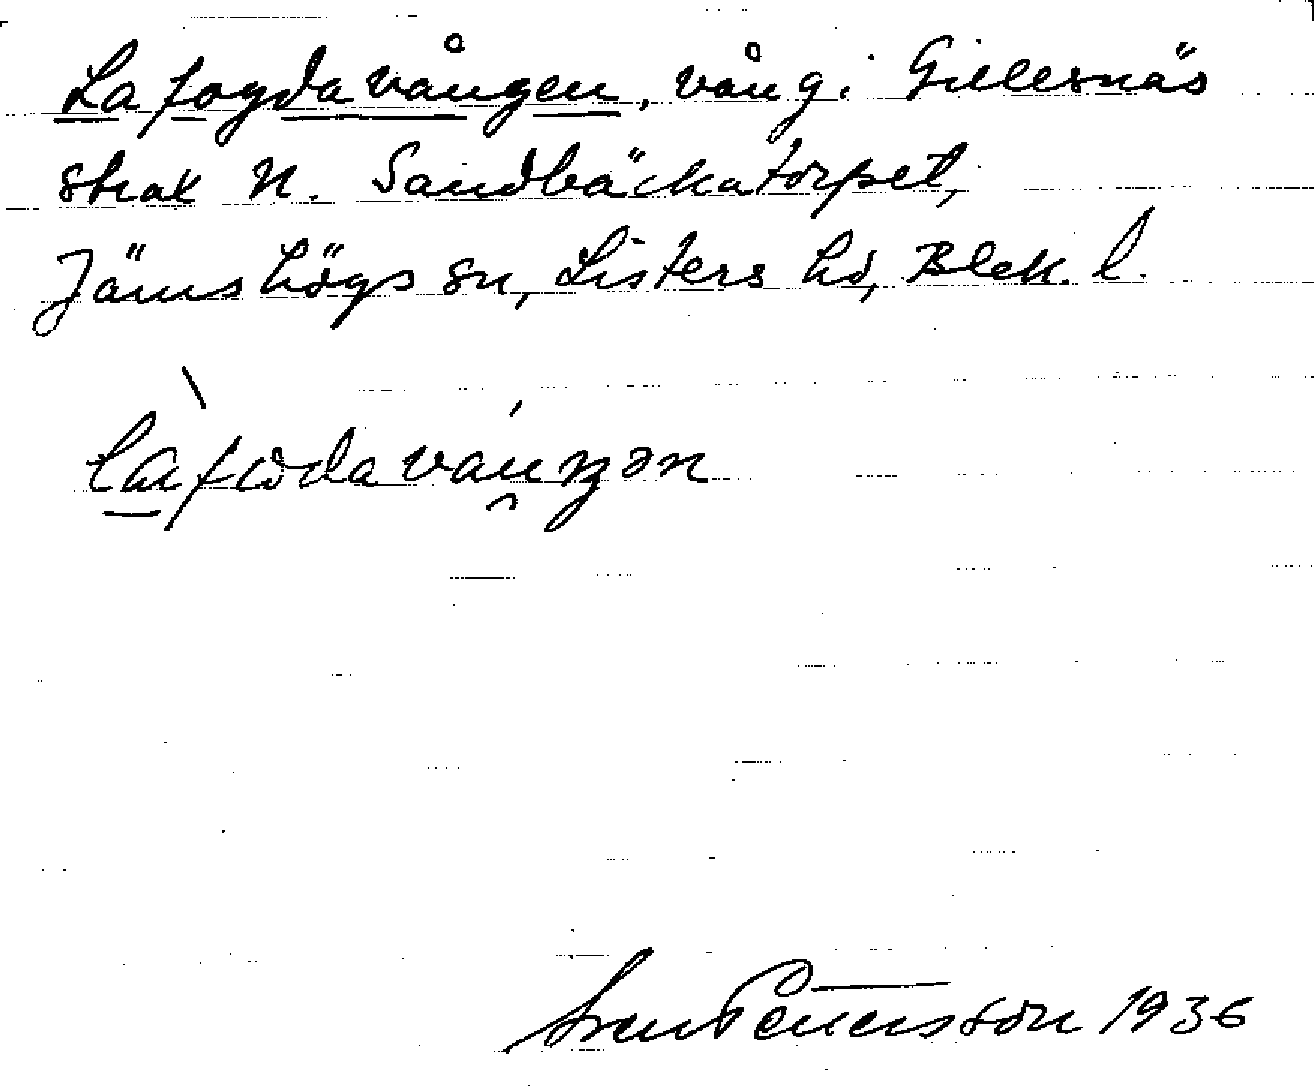 Lafogdavången, vång i Gillesnäs
strax N. Sandbäckatorpet,
Jämshögs sn, Listers hd, Blek. l.
Sven Pettersson 1936